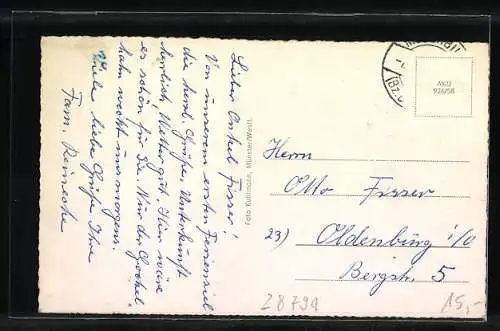 Lieber Onkel Fisser!
Von unserem ersten Ferienziel
die herzl. Grüße. Unterkunft
herrlich, Wetter gut. Hier wäre
es schön für Sie. Nur der Gockel-
hahn weckt uns morgens.
Viele liebe Grüße Ihre
Fam. Reinecke
Foto Kuhlmann, Münster/Westf.
(Bz.
AKU
926/58
Herrn
Otto Fisser
23) Oldenburg i/O
Bergstr. 5
Z8794
15,-